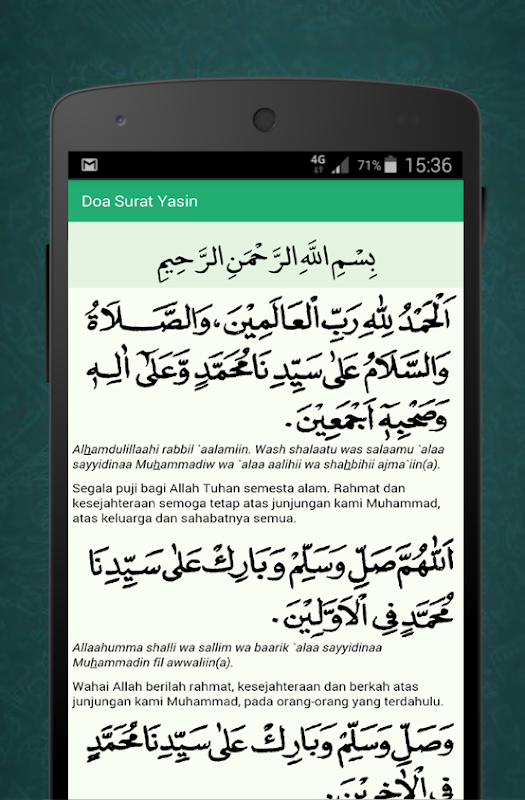 4G 71% 15:36
Doa Surat Yasin
بِسْمِ اللَّهِ الرَّحْمَنِ الرَّحِيمِ
اَلْحَمْدُ لِلّٰهِ رَبِّ الْعَالَمِيْنَ، وَالصَّلَاةُ
وَالسَّلَامُ عَلٰى سَيِّدِنَا مُحَمَّدٍ وَّعَلٰٓى اٰلِهٖ
وَصَحْبِهٖٓ اَجْمَعِيْنَ.
Alhamdulillaahi rabbil `aalamiin. Wash shalaatu was salaamu `alaa
sayyidinaa Muhammadiw wa `alaa aalihii wa shahbihii ajma`iin(a).
Segala puji bagi Allah Tuhan semesta alam. Rahmat dan
kesejahteraan semoga tetap atas junjungan kami Muhammad,
atas keluarga dan sahabatnya semua.
اَللّٰهُمَّ صَلِّ وَسَلِّمْ وَبَارِكْ عَلٰى سَيِّدِنَا
مُحَمَّدٍ فِى الْاَوَّلِيْنَ.
Allaahumma shalli wa sallim wa baarik `alaa sayyidinaa
Muhammadin fil awwaliin(a).
Wahai Allah berilah rahmat, kesejahteraan dan berkah atas
junjungan kami Muhammad, pada orang-orang yang terdahulu.
وَصَلِّ وَسَلِّمْ وَبَارِكْ عَلٰى سَيِّدِنَا مُحَمَّدٍ
فِى الْاٰخِرِيْنَ.